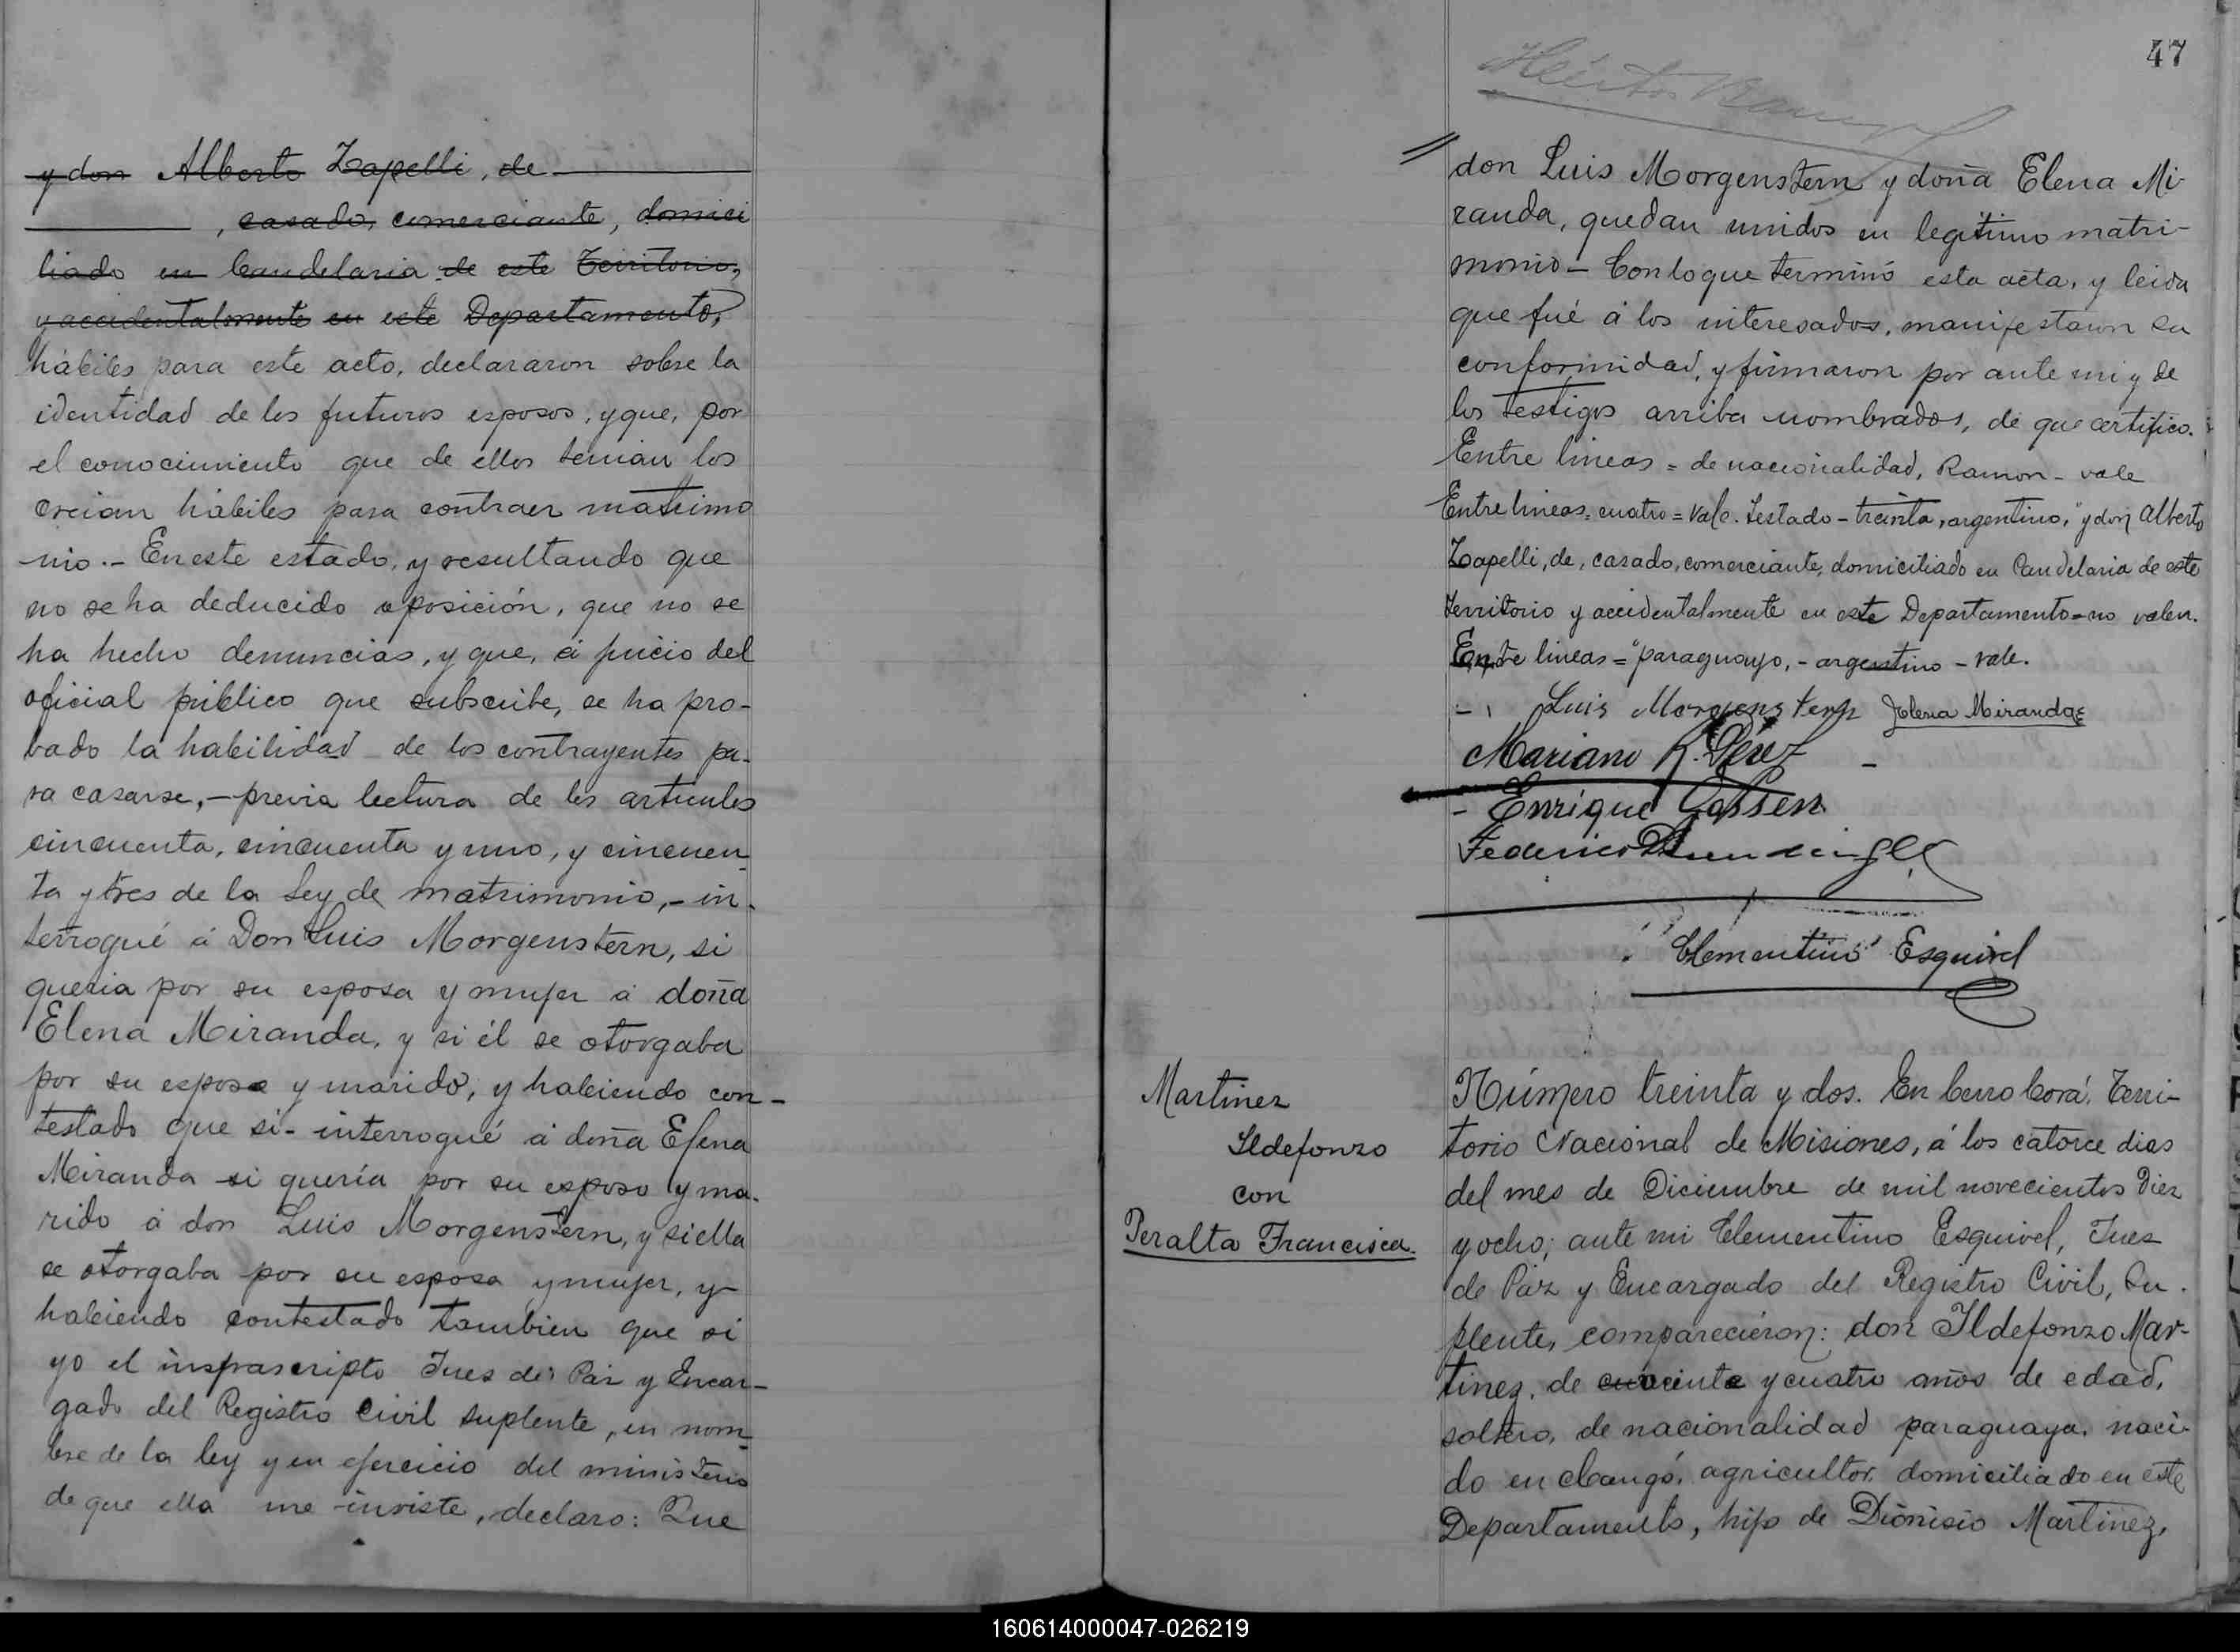 y don Alberto Zapelli, de
, casado, comerciante, domici
liado en Candelaria de este Territorio,
y accidentalmente en este Departamento,
hábiles para este acto, declararon sobre la
identidad de los futuros esposos, y que, por
el conocimiento que de ellos tenian los
creian hábiles para contraer matrimo
nio.- En este estado, y resultando que
no se ha deducido oposición, que no se
ha hecho denuncias, y que, á juicio del
oficial público que subscribe, se ha pro-
bado la habilidad de los contrayentes pa-
ra casarse,- previa lectura de los artículos
cincuenta, cincuenta y uno, y cincuen
ta y tres de la Ley de matrimonio,- in-
terrogué á Don Luis Morgenstern, si
queria por su esposa y mujer á doña
Elena Miranda, y si él se otorgaba
por su esposo y marido, y habiendo con-
testado que si- interrogué á doña Elena
Miranda si quería por su esposo y ma-
rido á don Luis Morgenstern, y si ella
se otorgaba por su esposa y mujer, y
habiendo contestado tambien que si
yo el infrascripto Juez de Paz y Encar-
gado del Registro Civil suplente, en nom-
bre de la ley y en ejercicio del ministerio
de que ella me inviste, declaro: Que
47
don Luis Morgenstern y doña Elena Mi-
randa, quedan unidos en legítimo matri-
monio- Con lo que terminó esta acta, y leida
que fué á los interesados, manifestaron su
conformidad, y firmaron por ante mi y de
los testigos arriba nombrados, de que certifico.
Entre lineas = de nacionalidad, Ramon - vale
Entre lineas = cuatro = vale. Testado - treinta, argentino, "y don Alberto
Zapelli, de, casado, comerciante, domiciliado en Candelaria de este
territorio y accidentalmente en este Departamento - no valen.
Entre lineas = "paraguayo, - argentino - vale.
Luis Morgenstern Elena Miranda
Mariano R. Pérez
Enrique Gossen
Federico
Clementino Esquivel
Martinez
Ildefonzo
con
Peralta Francisca.
Número treinta y dos. En Cerro Corá, Terri-
torio Nacional de Misiones, á los catorce dias
del mes de Diciembre de mil novecientos diez
y ocho; ante mi Clementino Esquivel, Juez
de Paz y Encargado del Registro Civil, Su-
plente, comparecieron: don Ildefonzo Mar-
tinez, de y cuatro años de edad,
soltero, de nacionalidad paraguaya, naci-
do en agricultor, domiciliado en este
Departamento, hijo de Dionisio Martinez,
160614000047-026219